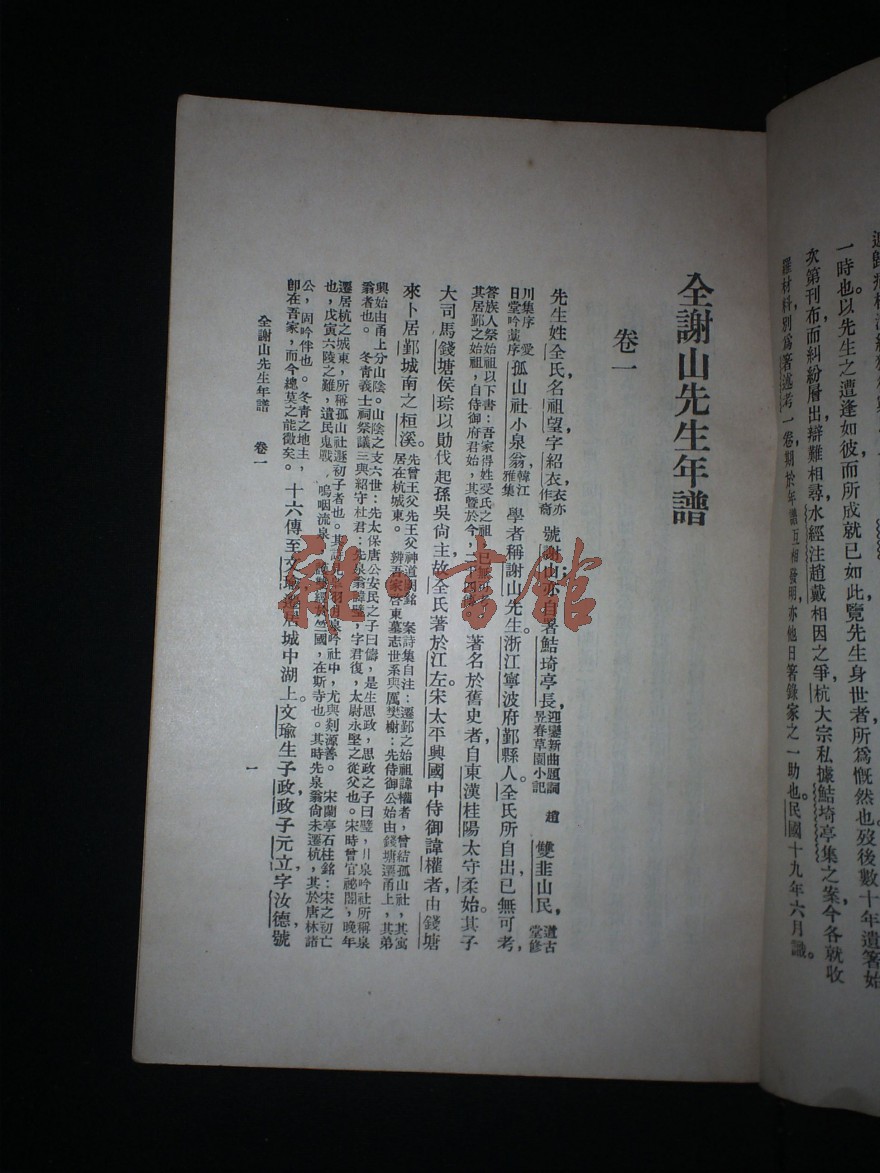 一時也。以先生之遭逢如彼而所成就已如此覽先生身世者所爲慨然也歿後數十年遺箸始
次第刊布而糾紛層出辯難相尋水經注趙戴相因之爭杭大宗私據鮚埼亭集之案今各就收
羅材料別爲箸述考一卷期於年譜互相發明亦他日箸錄家之一助也民國十九年六月識。
全謝山先生年譜
卷一
先生姓全氏名祖望字紹衣，衣亦作裔 號謝山亦自署鮚埼亭長，迎鑾新曲題詞 趙昱春草園小記 雙韭山民，道古堂修
川集序 愛日堂吟藁序 孤山社小泉翁，韓江雅集 學者稱謝山先生。浙江寧波府鄞縣人。全氏所自出已無可考，
答族人祭始祖以下書：吾家得姓受氏之祖，已無可考。其居鄞之始祖，自侍御府君始，其暨於今，二十四 著名於舊史者自東漢桂陽太守柔始。其子
大司馬錢塘侯琮以勛伐起孫吳尙主，故全氏著於江左。宋太平興國中侍御諱權者由錢塘
來卜居鄞城南之桓溪。先曾王父先王父神道闕銘 案詩集自注：遷鄞之始祖諱權者，曾結孤山社，其寓居在杭城東。 辨吾家啓東墓志世系與厲樊榭：先侍御公始由錢塘遷甬上，其弟
興始由甬上分山陰。山陰之支六世：先太保唐公安民之子曰儔，是生思政，思政之子曰璧，月泉吟社所稱泉
翁者也。 冬靑義士祠祭議三與紹守杜君：先泉翁諱璧，字君復，太尉永堅之從父也。宋時曾官祕閣，晚年
遷居杭之城東，所稱孤山社遯初子者也。其詩見 羽月泉吟社中，尤與剡源善。 宋蘭亭石柱銘：宋之初亡
也，戊寅六陵之難，遺民鬼戰，嗚咽流泉， 於竺國，在斯寺也。其時先泉翁尙未遷杭，其於唐林諸
公，固吟伴也。冬靑之地主，
卽在吾家，而今總莫之能徵矣。 十六傳至文瑜遷居城中湖上。文瑜生子政，政子元立字汝德，號
全謝山先生年譜 卷一
一